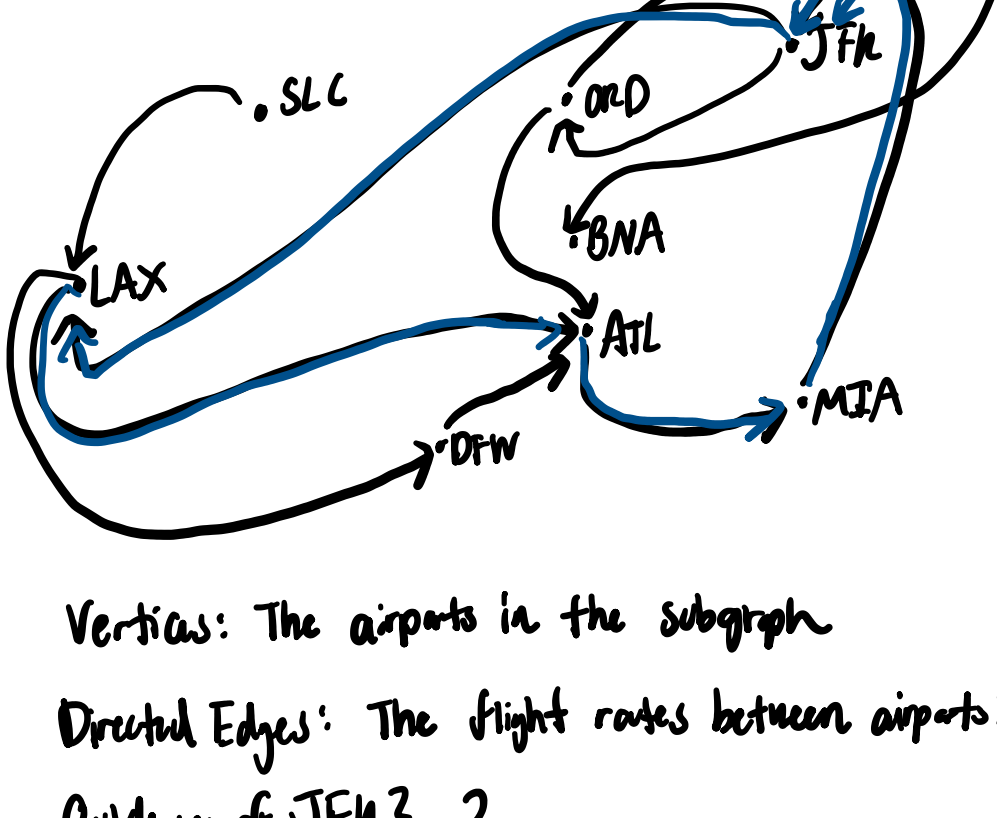 JFK
SLC
ORD
BNA
LAX
ATL
MIA
DFW
Vertices: The airports in the subgraph
Directed Edges: The flight routes between airports.
of JFK? 2